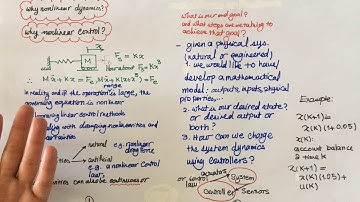 why nonlinear dynamics?
why nonlinear control?
Fs = Kx
M
Fs = Kx³
∴ Mẍ + Kx = Fe
In reality and if the operation is large, the
governing equation is nonlinear
nonlinear control methods
dealing with damping nonlinearities and
natural e.g. nonlinear
artificial
e.g. a nonlinear control
law
can also be continuous or
What is our end goal?
and what steps are we taking to
achieve that goal?
- given a physical sys.
(natural or engineered)
(we would like to/have)
develop a mathematical
model: outputs, inputs, physical
properties, ...
2. what is our desired state?
or desired output or
both?
3. How can we change
the system dynamics
using controllers?
actuators
or control law
System
Controller
Sensors
Example:
x(k+1) =
x(k)(1+0.05)
x(k)
account balance
@ time k
x(k+1) =
x(k)(1.05) +
u(k)